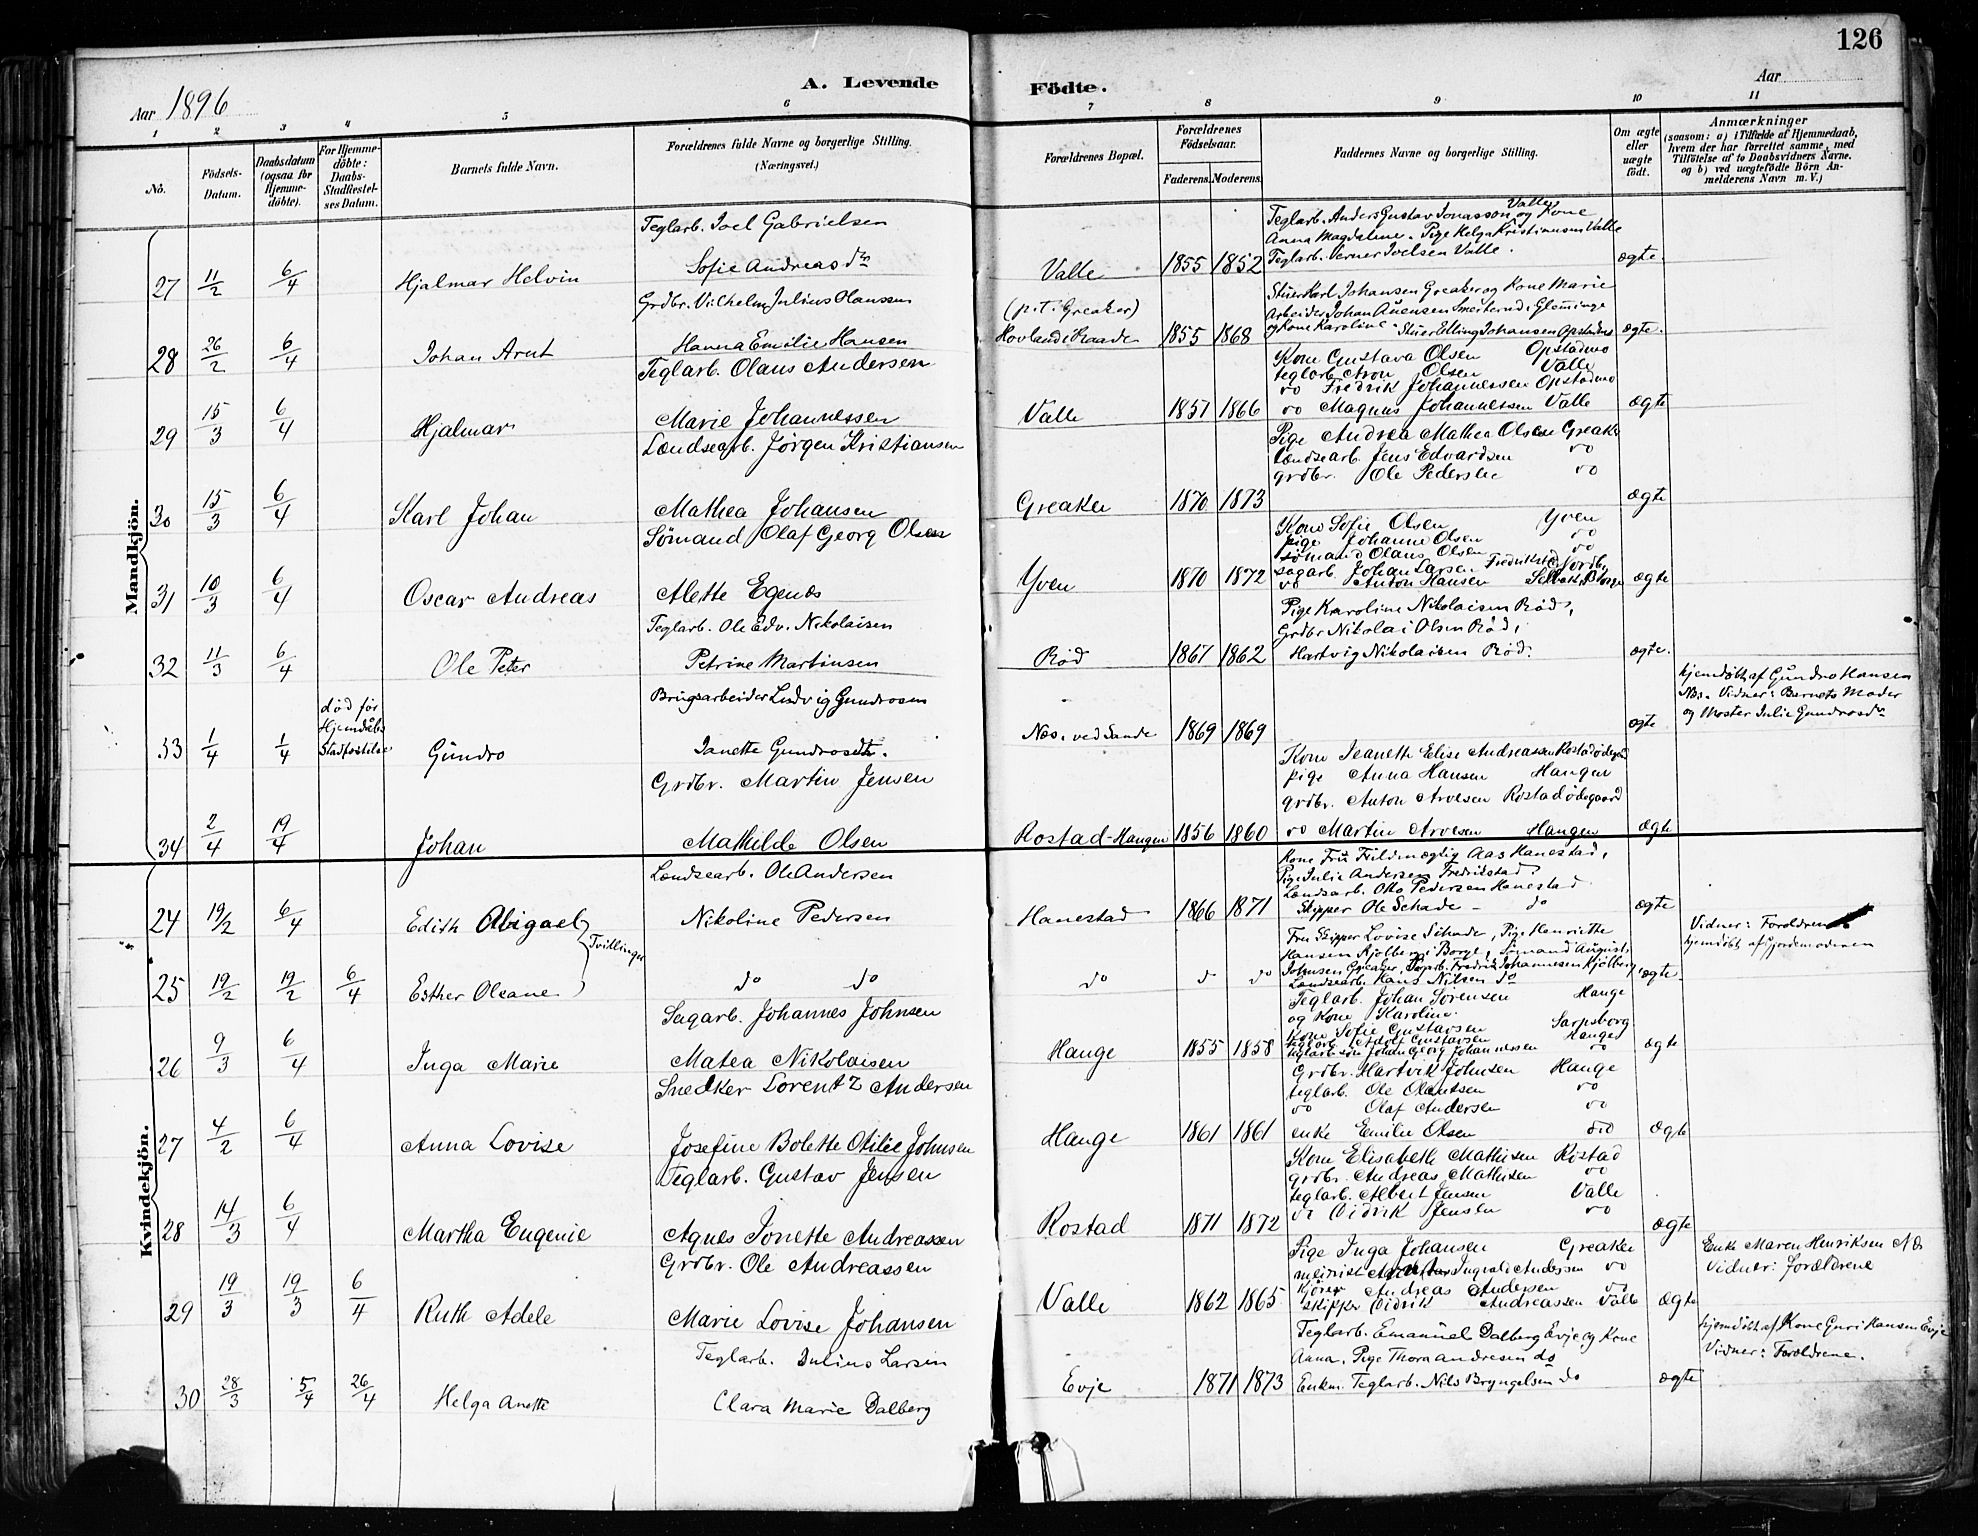 126
A. Levende Födte.
Aar 1896
Aar
1 2 3 4 5 6 7 8 9 10 11
No.
Födsels-Datum.
Daabsdatum (ogsaa for Hjemmedöbte).
For Hjemmedöbte: Daabs-Stadfæstelses Datum.
Barnets fulde Navn.
Forældrenes fulde Navne og borgerlige Stilling. (Næringsvei.)
Forældrenes Bopæl.
Forældrenes Födselsaar.
Faderens. Moderens.
Faddernes Navne og borgerlige Stilling.
Om ægte eller uægte födt.
Anmærkninger
(saasom: a) i Tilfælde af Hjemmedaab, hvem der har forrettet samme, med Tilföielse af to Daabsvidners Navne. og b) ved uægtefödte Börn Anmelderens Navn m. V.)
Mandkjön.
27 11/2 6/4 Hjalmar Helvin
Teglarb. Joel Gabrielsen
Sofie Andreasdr
Valle 1855 1852
Teglarb. Anders Gustav Jonasson Valle og Kone
Anna Magdalene. Pige Helga Kristiansen Valle
Teglarb. Verner Joelsen Valle.
ægte
28 26/2 6/4 Johan Arnt
Grdbr. Vilhelm Julius Hanssen
Hanna Emilie Hansen
(p.t. Greaker)
Hovland i Raade 1855 1868
Stuer Karl Johansen Greaker og Kone Marie
Arbeider Johan Glemminge
og Kone Karoline. Stuer Edling Johansen Opstadmo
ægte.
29 15/3 6/4 Hjalmar
Teglarb. Olaus Andersen
Marie Johannessen
Valle 1857 1866
Kone Gustava Olsen Opstadmo
teglarb. Aron Olsen Valle
do Fredrik Johannessen Opstadmo
do Magnus Johannessen Valle
ægte
30 15/3 6/4 Karl Johan
Lændsearb. Jørgen Kristiansen
Mathea Johansen
Greaker 1870 1873
Pige Andrea Mathea Olsen Greaker
Lændsearb. Jens Edvardsen do
grdbr. Ole Pedersen do
ægte
31 10/3 6/4 Oscar Andreas
Sömand Olaf Georg Olsen
Alette Egenes
Yven 1870 1872
Kone Sofie Olsen Yven
pige Johanne Olsen do
sømand Olaus Olsen do
sagarb. Johan Larsen Fredrikstad
do Anton Hansen Selbak Borge
ægte
32 11/3 6/4 Ole Peter
Teglarb. Ole Edv. Nikolaisen
Petrine Martinsen
Rød 1867 1862
Pige Karoline Nikolaisen Rød,
Grdbr Nikolai Olsen Rød,
Hartvig Nikolaisen Rød.
ægte.
33 1/4 1/4
død før Hjemdaabs Stadfæstelse
Gundro
Brugsarbeider Ludvig Gundrosen
Janette Gundrosdtr.
Næs. ved Sande 1869 1869
ægte
hjemdøbt af Gundro Hansen
Næs. Vidner: Barnets Moder
og Moster Julie Gundrosdr
34 2/4 19/4 Johan
Grdbr. Martin Jensen
Mathilde Olsen
Rostad-Haugen 1856 1860
Kone Jeanette Elise Andreassen Rostadødegaard
pige Anna Hansen Haugen
grdbr. Anton Arvesen Rostadødegaard
do Martin Arvesen Haugen
ægte
Kvindekjön.
24 19/2 6/4 Edith Abigael
Tvillinger
Lændsearb. Ole Andersen
Nikoline Pedersen
Hanestad 1866 1871
Kone Fru Fuldmægtig Aas Hanestad,
Pige Julie Andersen Fredrikstad,
Lændsarb. Otto Pedersen Hanestad
Skipper Ole Schade - do
ægte
25 19/2 19/2 6/4 Esther Oleane
do do
do do do
Fru Skipper Lovise Schade, Pige Henriette
Hansen Kjølberg i Borge, Sømand August
Johnsen Greaker, Fredrik Johannesen Kjølberg,
Lændsearb. Hans Nilsen do
ægte.
Vidner: Forældrene
hjemdøbt af Gjordemoderen
26 9/3 6/4 Inga Marie
Sagarb. Johannes Johnsen
Matea Nikolaisen
Hauge 1855 1858
Teglarb. Johan Sørensen Hauge
og Kone Karoline.
Kone Sofie Gustavsen Sarpsborg
teglarb. Adolf Gustavsen Hauge
teglarb. søn Johan Georg Johannessen do
ægte
27 4/2 6/4 Anna Lovise
Snedker Lorentz Andersen
Josefine Bolette Otilie Johnsen
Hauge 1861 1861
Grdbr. Hartvik Johnsen Hauge
teglarb. Ole Olautsen do
do Olaf Andersen do
enke Emilie Olsen do
ægte
28 14/3 6/4 Martha Eugenie
Teglarb. Gustav Jensen
Agnes Jonette Andreassen
Rostad 1871 1872
Kone Elisabeth Mathisen Rostad
grdbr. Andreas Mathisen do
teglarb. Albert Jensen Valle
do Didrik Jensen do
ægte
29 19/3 19/3 6/4 Ruth Adele
Grdbr. Ole Andreassen
Marie Lovise Johansen
Valle 1862 1865
Pige Inga Johansen Greaker
Ingvald Andersen do
Andreas Andersen do
skipper Didrik Andreassen Valle
ægte
Enke Maren Henriksen
Vidner: Forældrene
30 28/3 5/4 26/4 Helga Anette
Teglarb. Julius Larsen
Clara Marie Dalberg
Evje 1871 1873
Teglarb. Emanuel Dalberg Evje og Kone
Anna. Pige Thora Andresen do
Enkm. Teglarb. Nils Bryngelsen do
ægte
hjemdøbt af Kone Guri Hansen Evje
Vidner: Forældrene.